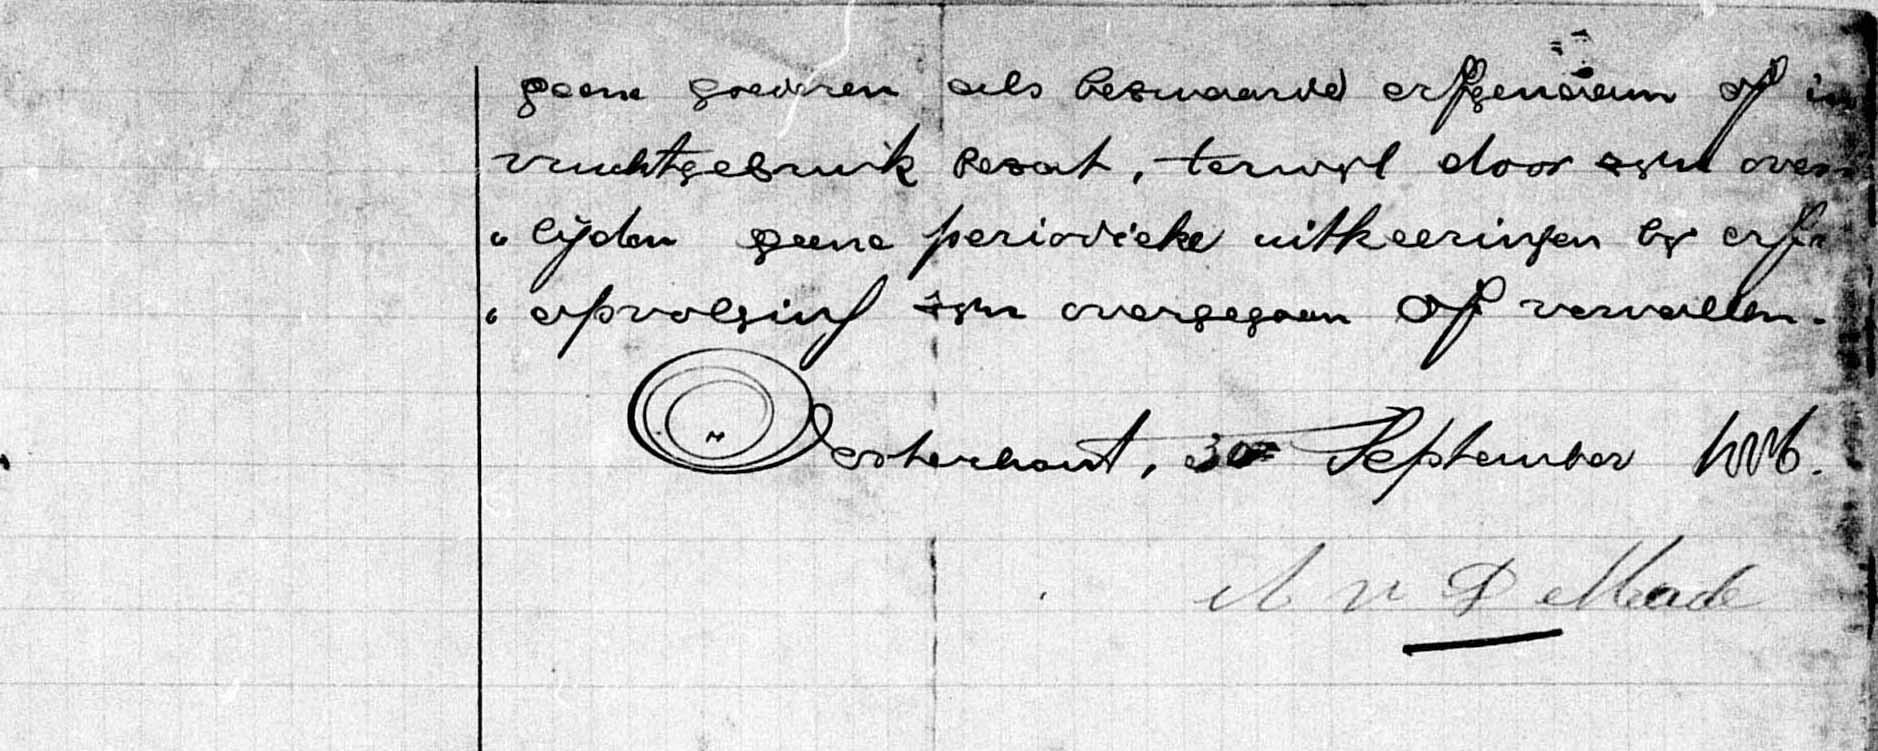 geene goederen als bezwaarde erfgenaam of in
vruchtgebruik bezat, terwyl door zyn over-
„ lijden geene periodieke uitkeeringen by erf-
„ opvolging zyn overgegaan of vervallen.
Oosterhout, 30 September
A v D Made